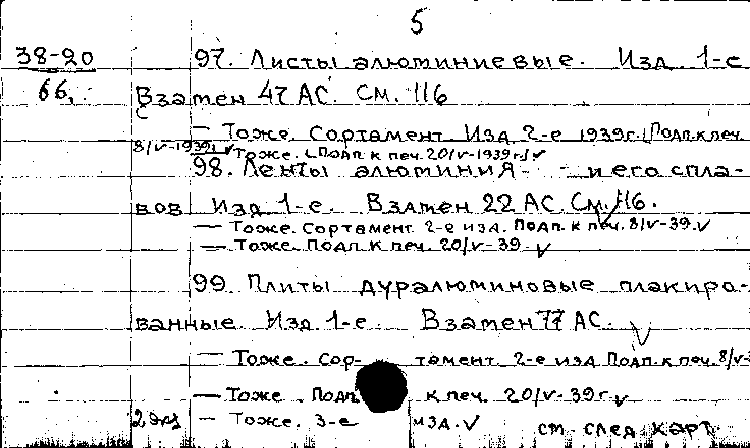 5
38-20 97. Листы алюминиевые. Изд. 1-е
66. Взамен 47 АС. См. 116
— Тоже. Сортамент. Изд. 2-е 1939г. (Подп. к печ.
8/V-1939г. Тоже. (Подп. к печ. 20/V-1939г.)
98. Ленты алюминия - - и его спла-
вов Изд. 1-е. Взамен 22 АС. См. 116.
— Тоже. Сортамент. 2-е изд. Подп. к печ. 8/V-39.
— Тоже. Подп. к печ. 20/V-39.
99. Плиты дуралюминовые плакиро-
ванные. Изд. 1-е. Взамен 77 АС.
— Тоже. Сор- тамент. 2-е изд. Подп. к печ. 8/V-
— Тоже. Подп. к печ. 20/V-39г.
2 экз — Тоже. 3-е изд.
см след карт